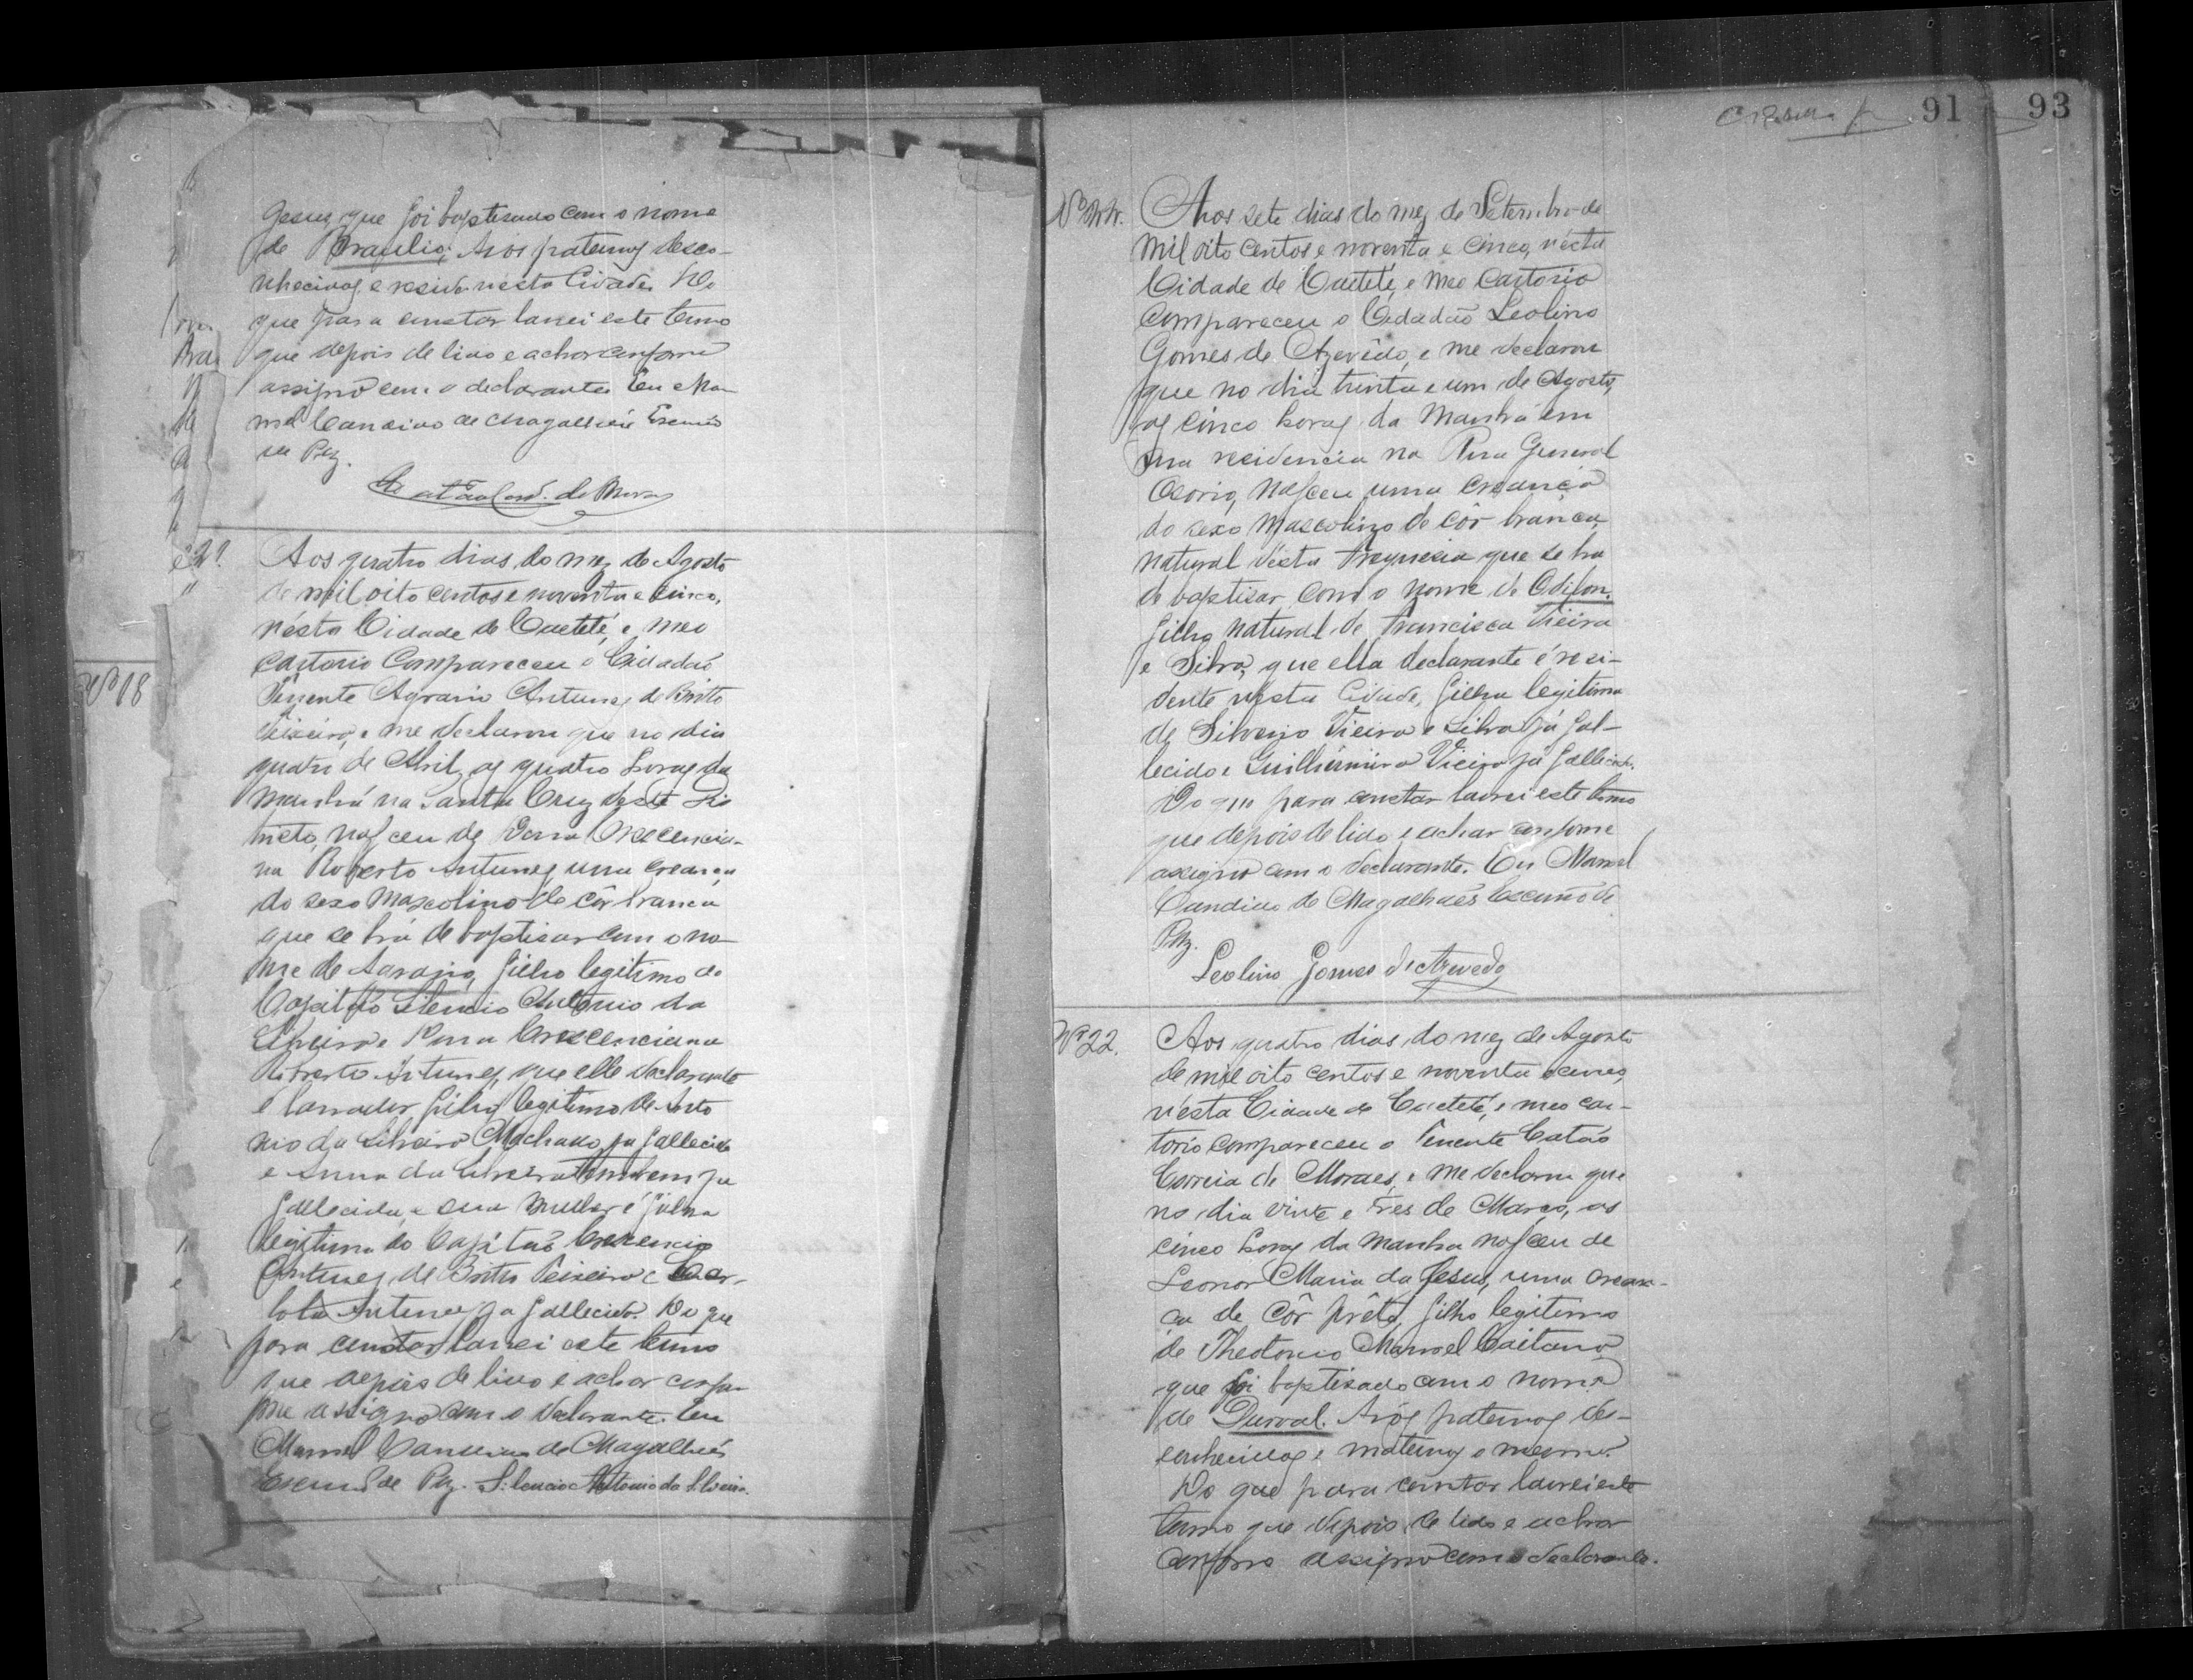 Jesus, que foi baptisado com o nome
de Braulio; Avós paternos desco-
nhecidos e reside nesta Cidade. Do
que para constar lavrei este termo
que depois de lido e achar conforme
assigno com o declarante. Eu Ma-
noel Candido de Magalhães Escrivão
de Paz.
21.
Aos quatro dias do mez de Agosto
de mil oito centos e noventa e cinco,
nésta Cidade de Caetété, e meo
Cartorio Compareceu o Cidadaõ
Tenente Agrario Antunes de Britto
Teixeira, e me declarou que no dia
quatro de Abril, as quatro horas da
manhã na Santa Cruz déste Dis
tricto, nasceu de Dona Crescencia-
na Roberto Antunes uma creança
do sexo Mascolino de côr branca
que se há de baptisar com o no-
me de, filho legitimo do
Capitão Silencio Antonio da
Silveira e Dona Crescenciana
Roberto Antunes, que elle declarante
é lavrador filho legitimo de Anto
nio da Silveira Machado, ja fallecido
e Anna da Silveira Tambem ja
fallecida, e sua mulher é filha
legitima do Capitaõ Crescencio
Antunes de Britto Teixeira e Car-
lota Antunes ja fallecida. Do que
para constar lavrei este termo
que depois de lido e achar confor
me assigno com o declarante. Eu
Manoel Candido de Magalhães
Escrivão de Paz. Silencio Antonio da Silveira.
Nº 18
91
93
Aos sete dias do mez de Setembro de
Mil oito centos e noventa e cinco, nésta
Cidade de Caetété, e meo Cartorio
Compareceu o Cidadaõ Leolino
Gomes de Azevêdo, e me declarou
que no dia trinta e um de Agosto,
as cinco horas da Manhã em
sua residencia na Rua General
Osorio, nasceu uma creança
do sexo Mascolino de côr branca,
natural désta Freguesia que se ha
de baptisar com o nome de Odilon.
filho natural de Francisca Vieira
e Silva, que ella declarante é resi-
dente nesta Cidade, filha legitima
de Silverio Vieira e Silva já fal-
lecido e Guilhermina Vieira já fallecida.
Do que para constar lavrei este termo
que depois de lido e achar conforme
assigno com o declarante. Eu Manoel
Candido de Magalhães Escrivão de
Paz.
Leolino Gomes de Azevedo
Nº 22.
Aos quatro dias do mez de Agosto
de mil oito centos e noventa e cinco,
n'esta Cidade de Caetété, e meo car-
torio compareceu o Tenente Catão
Correia de Moraes, e me declarou que
no dia vinte e Tres de Março, as
cinco horas da manha nasceu de
Leonor Maria da Jesus, uma crean-
ça de côr prêta, filho legitimo
de Theotonio Manoel Caitano
que foi baptisado com o nome
de Durval. Avós paternos des-
conhecidos e maternos o mesmo.
Do que para constar lavrei este
termo que depois de lido e achar
conforme assigno com o declarante.